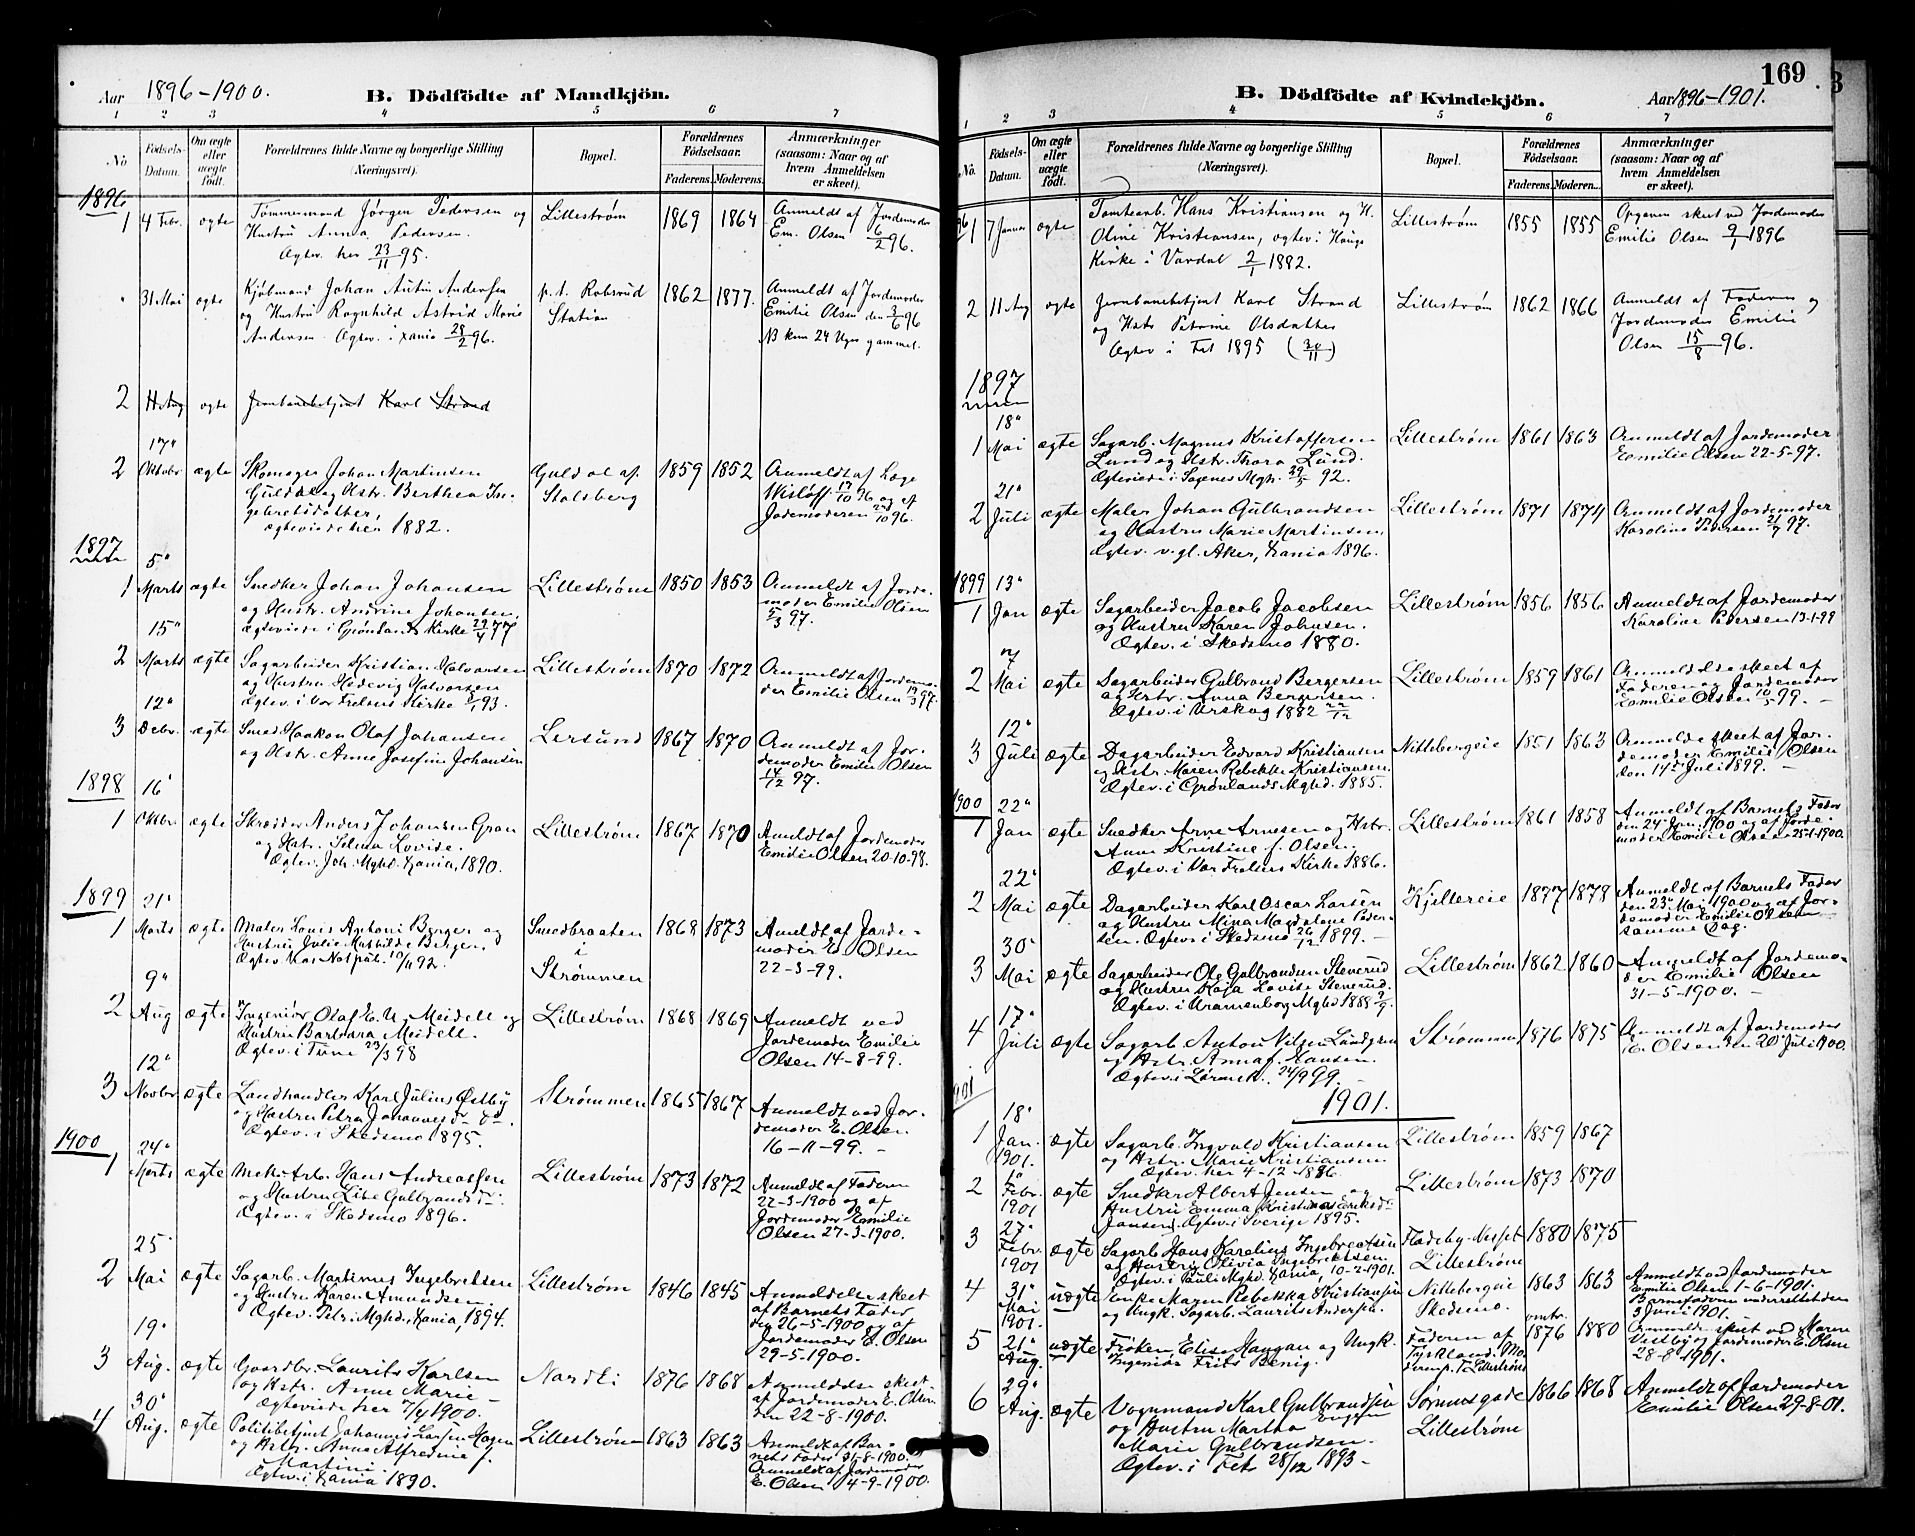 Aar 1896-1900.
B. Dödfödte af Mandkjön.
1 2 3 4 5 6 7
No
Födsels-Datum.
Om ægte eller uægte født.
Forældrenes fulde Navne og borgerlige Stilling (Næringsvei).
Bopæl.
Forældrenes Fødselsaar.
Faderens. Moderens.
Anmærkninger (saasom: Naar og af hvem Anmeldelsen er skeet).
1896
1 4 Febr. ægte Tømmermand Jørgen Pedersen og Lillestrøm 1869 1864 Anmeldt af Jordemoder
Hustru Anna Pedersen. Em. Olsen 6/2 96.
Ægtev. her 23/11 95.
" 31 Mai ægte Kjøbmand Johan Andersen p.t. Robsrud 1862 1877. Anmeldt af Jordemoder
og Hustru Ragnhild Astrid Marie Station Emilie Olsen den 3/6 96
Andersen Ægtev. i Xania 28/2 96. NB kun 24 Uger gammel.
2 11 Aug ægte Jernbanebetjent Karl Strand
17"
2 Oktobr ægte Skomager Johan Martinsen Guldal af 1859 1852 Anmeldt af Læge
Guldal og Hstr. Berthea In- Stalsberg Wisløff 17/10 96 og af
gebretsdatter, Jordemoderen 10 96.
ægteviede her 1882.
1897
5"
1 Marts ægte Snedker Johan Johansen Lillestrøm 1850 1853 Anmeldt af Jorde-
og Hustr. Andrine Johansen, moder Emilie Olsen
15" ægteviede i Grønlands Kirke 29/4 77 5/3 97.
2 Marts ægte Sagarbeider Kristian Halvorsen Lillestrøm 1870 1872 Anmeldt af Jordemo-
og Hustru Hedevig Halvorsen der Emilie Olsen 19/3 97.
12" Ægtev. i Vor Frelsers Kirke 93.
3 Debr. ægte Smed Haakon Olaf Johansen Lersund 1867 1870 Anmeldt af Jor-
og Hstr. Anne Josefine Johansen demoder Emilie Olsen
14/12 97.
1898 16"
1 Oktbr. ægte Skrædder Anders Johansen Gran Lillestrøm 1867 1870 Anmeldt af Jordemoder
og Hstr. Selma Lovise. Emilie Olsen 20-10-98.
Ægtev. Joh. Mghd. Xania, 1890.
1899 21"
1 Marts ægte Maler Louis Anthoni Berger og Smedbraaten 1868 1873 Anmeldt af Jorde-
Hustru Julie Mathilde Berger. i moder E. Olsen
Ægtev. 10/11 92. Strømmen 22-3-99.
9"
2 Aug ægte Ingeniør Olaf E. N. Meidell og Lillestrøm 1868 1869 Anmeldt ved
Hustru Barbara Meidell. Jordemoder Emilie
Ægtev. i Tune 23/3 98 Olsen 14-8-99.
12"
3 Novbr. ægte Landhandler Karl Julius Østby Strømmen 1865 1867 Anmeldt ved Jor-
og Hustru Petra Johannesdr do. demoder E. Olsen
Ægtev. i Skedsmo 1895. 16-11-99. -
1900 24"
1 Marts ægte Mek. Arb. Hans Andreassen Lillestrøm 1873 1872 Anmeldt af Faderen
og Hustru Lise Gulbrandsdr. 22-3-1900 og af
Ægtev. i Skedsmo 1896. Jordemoder Emilie
Olsen 27-3-1900.
25"
2 Mai ægte Sagarb. Martinus Ingebretsen Lillestrøm 1846 1845 Anmeldelse skeet
og Hustru Karen Amundsen. af Barnets Fader
Ægtev. Petri Mghd. Xania, 1894. den 26-5-1900 og af
Jordemoder E. Olsen
19" 29-5-1900.
3 Aug. ægte Gaardbr. Laurits Karlsen Nardli 1876 1868 Anmeldelse skeet
og Hstr. Anne Marie - af Jordemoder E. Olsen
30" Ægteviede her 7/4 1900. den 22-8-1900.
4 Aug. ægte Politibetjent Johannes Larsen Hagen Lillestrøm 1863 1863 Anmeldt af Bar-
og Hstr. Anna Alfredine f. nets Fader 31-8-1900.
Martini. Anmeldt af Jordemoder
Ægtev. i Xania 1890. E. Olsen 4-9-1900.
169
B. Dödfödte af Kvindekjön.
Aar 1896-1901.
1 2 3 4 5 6 7
No.
Födsels-Datum.
Om ægte eller uægte født.
Forældrenes fulde Navne og borgerlige Stilling (Næringsvei).
Bopæl.
Forældrenes Fødselsaar.
Faderens. Moderens.
Anmærkninger (saasom: Naar og af hvem Anmeldelsen er skeet).
96 1 7 Januar ægte Tomtearb. Hans Kristiansen og H. Lillestrøm 1855 1855 Opgaven skeet ved Jordemoder
Oline Kristiansen, ægtev. i Hauge Emilie Olsen 9/1 1896
Kirke i Vardal 2/1 1882.
2 11 Aug ægte Jernbanebetjent Karl Strand Lillestrøm 1862 1866 Anmeldt af Faderen og
og Hstr Petrine Olsdatter Jordemoder Emilie
Ægtev i Fet 1895 (30/11) Olsen 15/8 96.
1897
18"
1 Mai ægte Sagarb. Magnus Kristoffersen Lillestrøm 1861 1863 Anmeldt af Jordemoder
Lund og Hstr. Thora Lund. Emilie Olsen 22-5-97.
Ægteviede i Sagenes Mgh. 29/5 92.
21"
2 Juli ægte Maler Johan Gulbrandsen Lillestrøm 1871 1874 Anmeldt af Jordemoder
og Hustru Marie Martinsen, Karoline Pedersen 21/7 97.
Ægtev. v. gl. Aker, Xania 1896.
1899 13"
1 Jan ægte Sagarbeider Jacob Jacobsen Lillestrøm 1856 1856 Anmeldt af Jordemoder
og Hustru Karen Johnsen. Karoline Pedersen 13-1-99
Ægtev. i Skedsmo 1880.
7
2 Mai ægte Dagarbeider Gulbrand Bergersen Lillestrøm 1859 1861 Anmeldelse skeet af
og Hstr. Anna Bergersen. Faderen og Jordemoder
Ægtev. i Urskog 1882 22/12 Emilie Olsen 10/5 99. -
12"
3 Juli ægte Dagarbeider Edvard Kristiansen Nittebergeie 1851 1863 Anmeldelse skeet af Jor-
og Hstr. Maren Rebekka Kristiansen. demoder Emilie Olsen
Ægtev. i Grønlands Mghd. 1885. den 14de Juli 1899. -
1900 22"
1 Jan ægte Snedker Arne Arnesen og Hstr. Lillestrøm 1861 1858 Anmeldt af Barnets Fader
Anne Kristine f. Olsen. den 24" Jan. 1900 og af Jorde-
Ægtev. i Vor Frelsers Kirke 1886. moder Emilie Olsen 25-1-1900.
22"
2 Mai ægte Dagarbeider Karl Oscar Larsen Kjellereie 1877 1878 Anmeldt af Barnets Fader
og Hustru Mina Magdalene Peder- den 23" Mai 1900 og af Jor-
sen. Ægtev. i Skedsmo 26/12 1899. - demoder Emilie Olsen
30" samme Dag.
3 Mai ægte Sagarbeider Ole Gulbrandsen Steverud Lillestrøm 1862 1860 Anmeldt af Jordemo-
og Hustru Kaja Lovise Steverud. der Emilie Olsen
Ægtev. i Uranienborg Mghd 1888 9/9. 31-5-1900. -
17"
4 Juli ægte Sagarb. Anton Nilsen Lundgren Strømmen 1876 1875 Anmeldt af Jordemoder
og Hstr. Anna f. Hansen. E. Olsen den 20" Juli 1900.
Ægtev. i Lørensk. 24/9 99.
1901 1901.
18"
1 Jan. ægte Sagarb. Ingvald Kristiansen Lillestrøm 1859 1867
1901. og Hstr. Marie Kristiansen
Ægtev. her 4-12-1886.
1"
2 Febr. ægte Snedker Albert Jensen og Lillestrøm 1873 1870
1901 Hustru Emma Kristina Eriksdr
Jansen. Ægtev. i Sverige 1895.
27"
3 Febr. ægte Sagarb. Hans Karelius Ingebrectsen Fladeby-Nesset 1880 1875
1901 og Hustru Olivia Ingebretsen Lillestrøm
Ægtev. i Pauli Mghd. Xania, 10-2-1901.
4 31" uægte Enke Maren Rebekka Kristiansen Nittebergeie 1863 1863 Anmeldt ved Jordemoder
Mai og Ungk. Sagarb. Laurits Andersen. Skedsmo. Emilie Olsen 1-6-1901.
1901. Barnefaderen underrettet den
3 Juni 1901.
5 21" uægte Frøken Elise Haugan og Ungk. Faderen af omtr. 1876 1880 Anmeldelse skeet ved Maren
Aug. Ingeniør Frits Benig. Tyskland. Mo- Vestby og Jordemoder E. Olsen
deren p. T. Lillestrøm 28-8-1901.
29"
6 Aug. ægte Vognmand Karl Gulbrandsen Sørumsgade 1866 1868 Anmeldt af Jordemoder
og Hustru Martha Lillestrøm Emilie Olsen 29-8-01.
Marie Gulbrandsen.
Ægtev. i Fet 28/12 1893 -